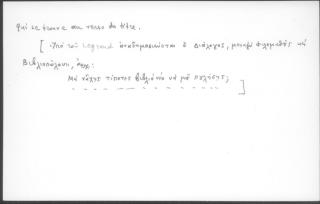 qui se trouve au verso du titre.
[ Ὑπὸ τοῦ Legrand ἀναδημοσιεύεται ὁ διάλογος, μεταξὺ Φιλομαθοῦς καὶ
Βιβλιοπώλου, ἀρχ:
Μὴ νἄχῃς τίποτες βιβλίο νὰ μὲ πουλήσῃς;
]